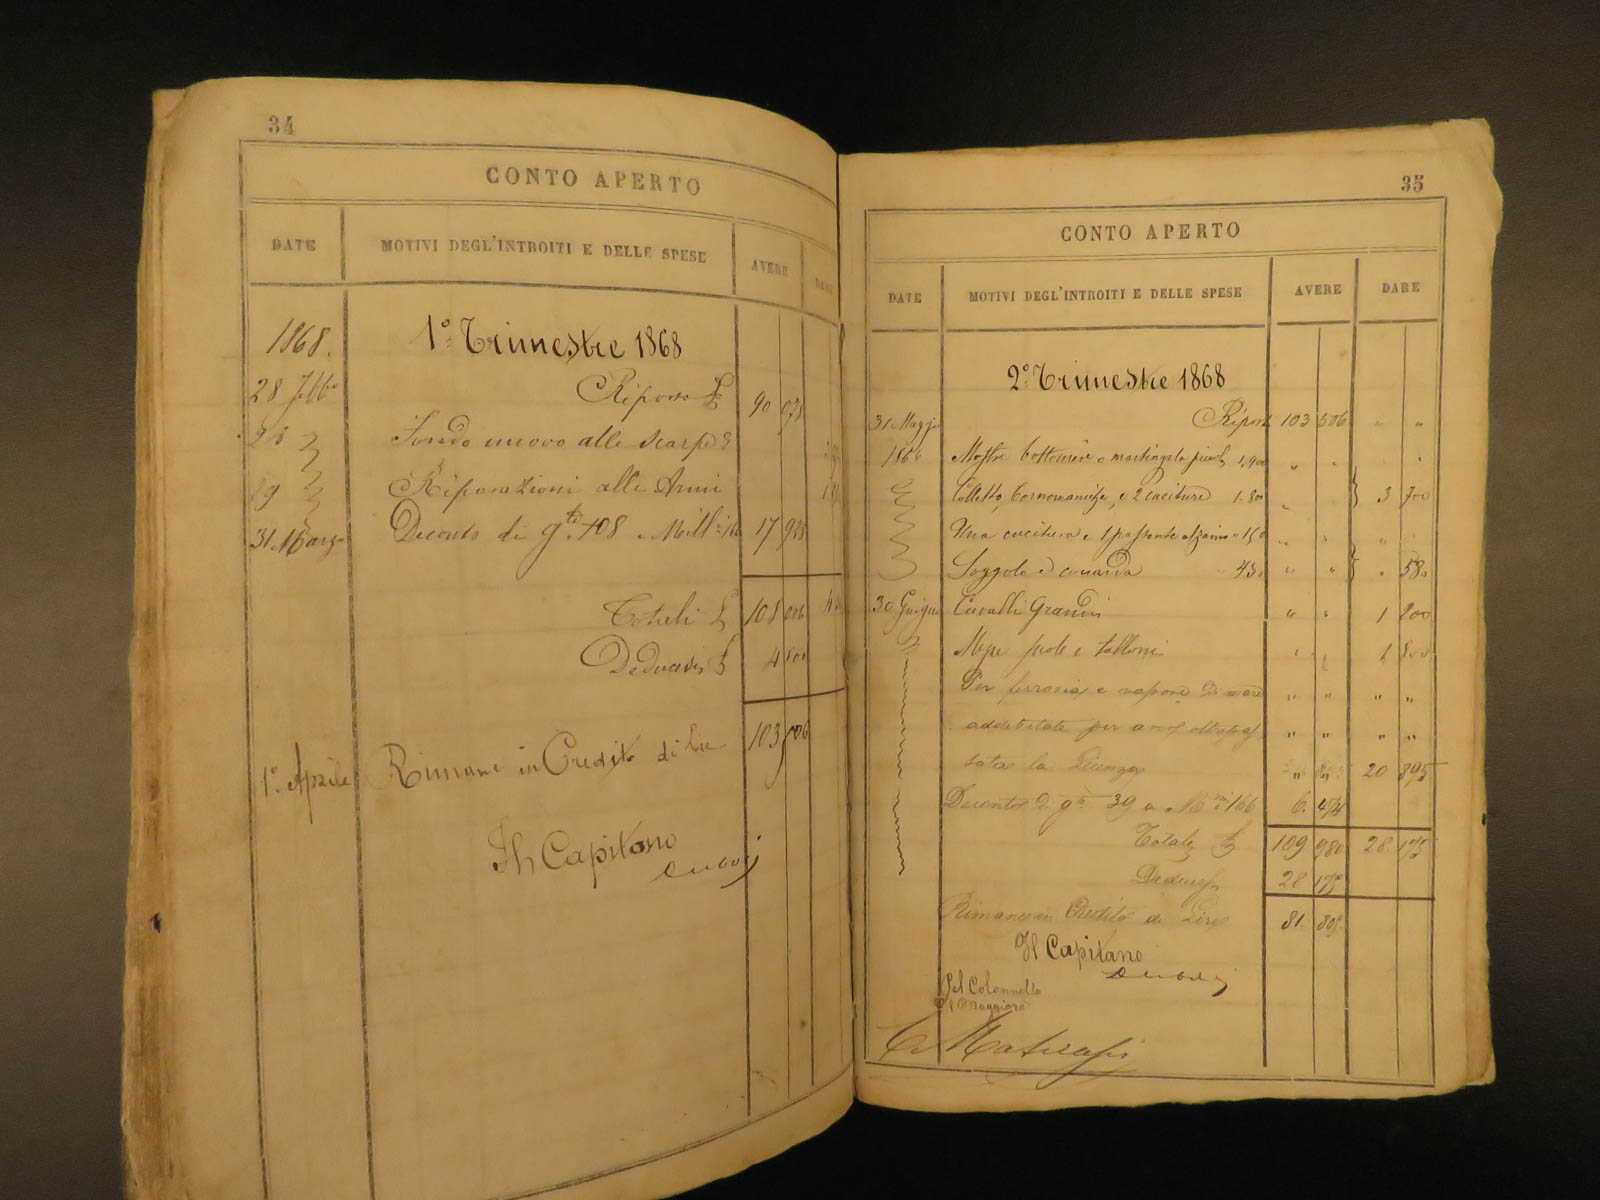 34
CONTO APERTO
DATE MOTIVI DEGL'INTROITI E DELLE SPESE AVERE DARE
1868. 1º Trimestre 1868
28 Febbº Riporto L 90
28 Fondo nuovo alle scarpe
29 Riparazioni alle Armi
31 Marzo Deconto di 17
Totali L 108 006
Dedconsi L 4 500
1º Aprile Rimane in Credito di Lire 103 506
Il Capitano
35
CONTO APERTO
DATE MOTIVI DEGL'INTROITI E DELLE SPESE AVERE DARE
2º Trimestre 1868
31 Maggio Riporto 103 506 " "
1868 bottoniere e martingala 1,900 " " "
Colletto, e 2 cuciture 1.800 3 700
Una cucitura e 1 passante 150
Soggolo e coccarda 430 " " 580
30 Giugno Cavalli Grandi " " 1 200
Mezze suole e talloni 1 800
Per ferrovia e vapore di mare " " " "
addebitate per aver oltrepas " " " "
sata la Licenza 20 895
Deconto di gte 39 a 166 6. 474
Totale L 109 980 28. 175
Deduconsi 28 175
Rimane in Credito di Lire 81. 805
Il Capitano
Pel Colonnello
Il Maggiore